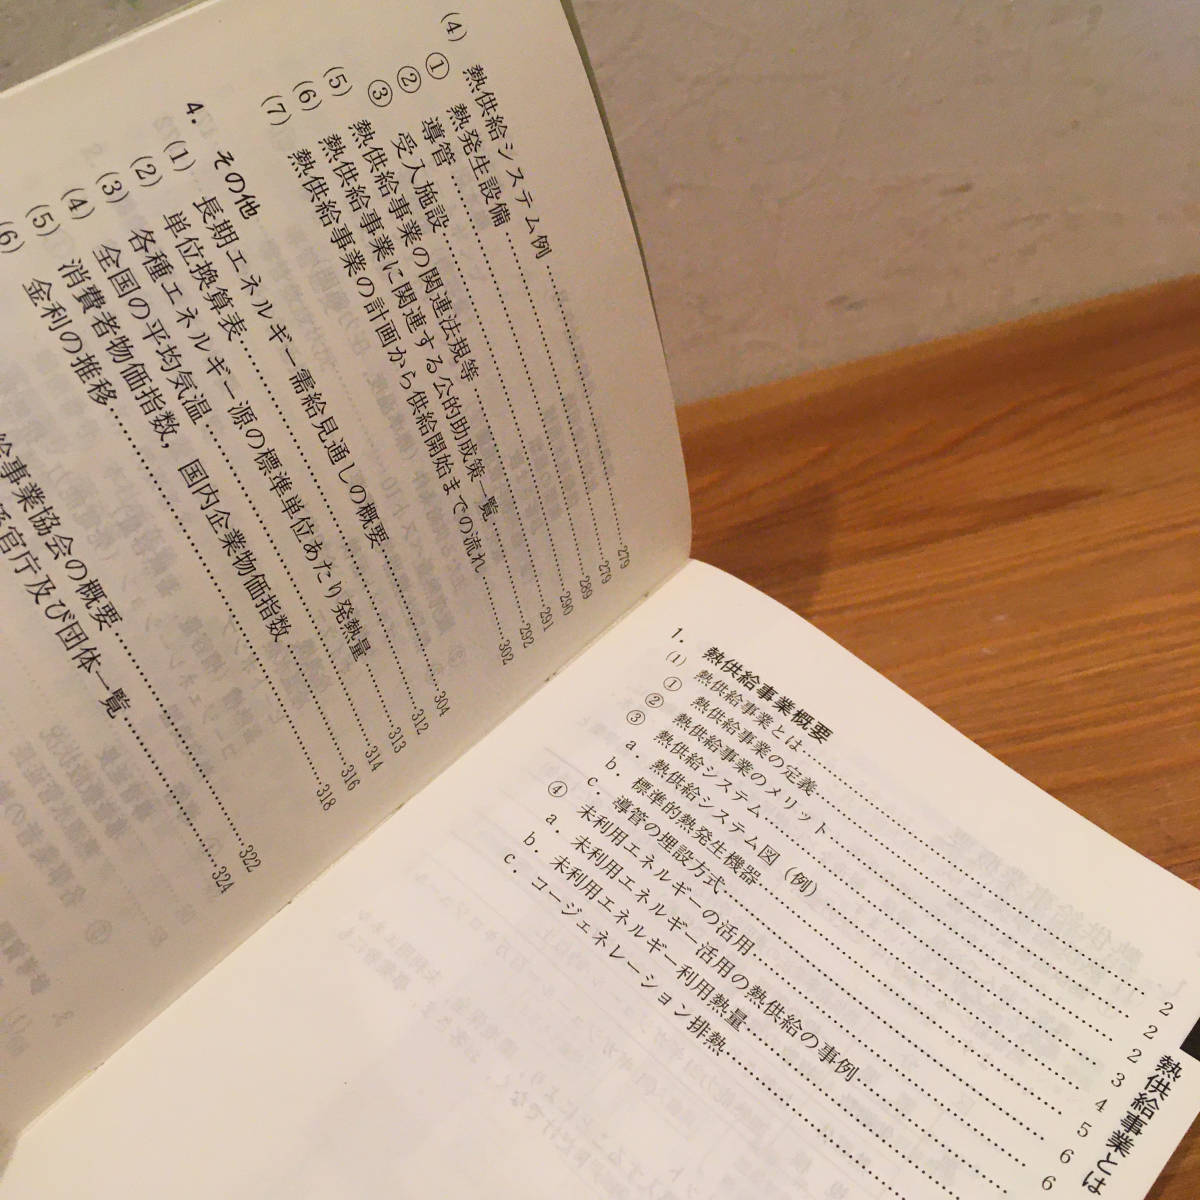 (4) 熱供給システム例……279
① 熱発生設備……279
② 導管……289
③ 受入施設……290
(5) 熱供給事業の関連法規等……291
(6) 熱供給事業に関連する公的助成策一覧……292
(7) 熱供給事業の計画から供給開始までの流れ……302
4. その他
(1) 長期エネルギー需給見通しの概要……304
(2) 単位換算表……312
(3) 各種エネルギー源の標準単位あたり発熱量……313
(4) 全国の平均気温……314
(5) 消費者物価指数，国内企業物価指数……316
(6) 金利の推移……318
給事業協会の概要……322
官庁及び団体一覧……324
1. 熱供給事業概要
(1) 熱供給事業とは……2
① 熱供給事業の定義……2
② 熱供給事業のメリット……2
③ 熱供給システム……3
a. 熱供給システム図（例）……4
b. 標準的熱発生機器……5
c. 導管の埋設方式……6
④ 未利用エネルギーの活用……6
a. 未利用エネルギー活用の熱供給の事例……
b. 未利用エネルギー利用熱量……
c. コージェネレーション排熱……
熱供給事業とは